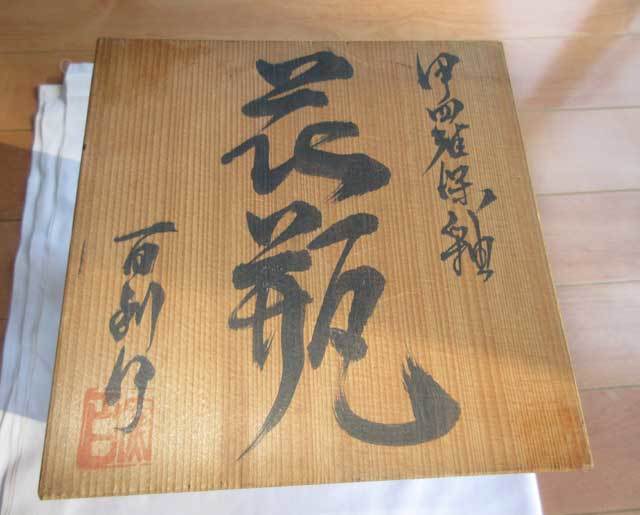 伊羅保釉
花瓶
百 作